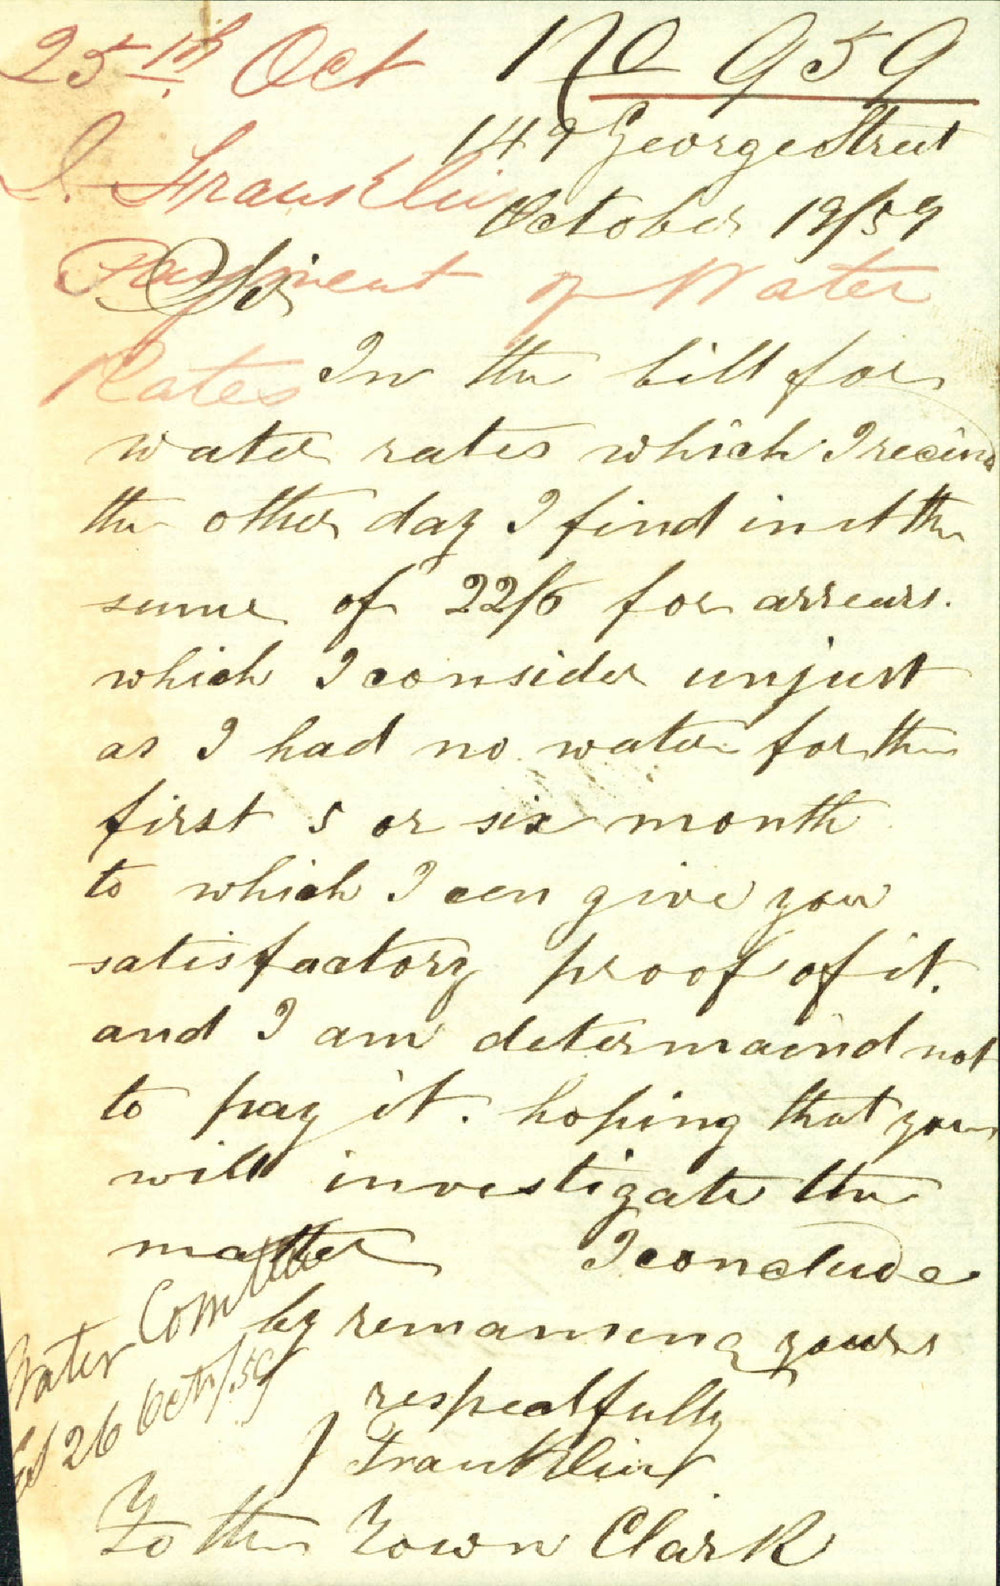 25th Oct
No 959
149 George Street
J. Franklin
October 19/59
Payment of Water
Sir
Rates
In the bill for
water rates which I receivd
the other day I find in it the
sume of 22/6 for arrears.
which I consider unjust
as I had no water for the
first 5 or six month
to which I cen give you
satisfactory proof of it.
and I am determaind not
to pay it. hoping that you
will investigate the
matter I conclude
by remaneng yours
respectfully
J Franklin
To the Town Clark
Water Comttee
26 Oct/59